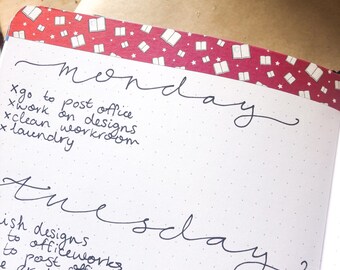 monday
x go to post office
x work on designs
x clean workroom
x laundry
tuesday
ish designs
to officeworks
to post off